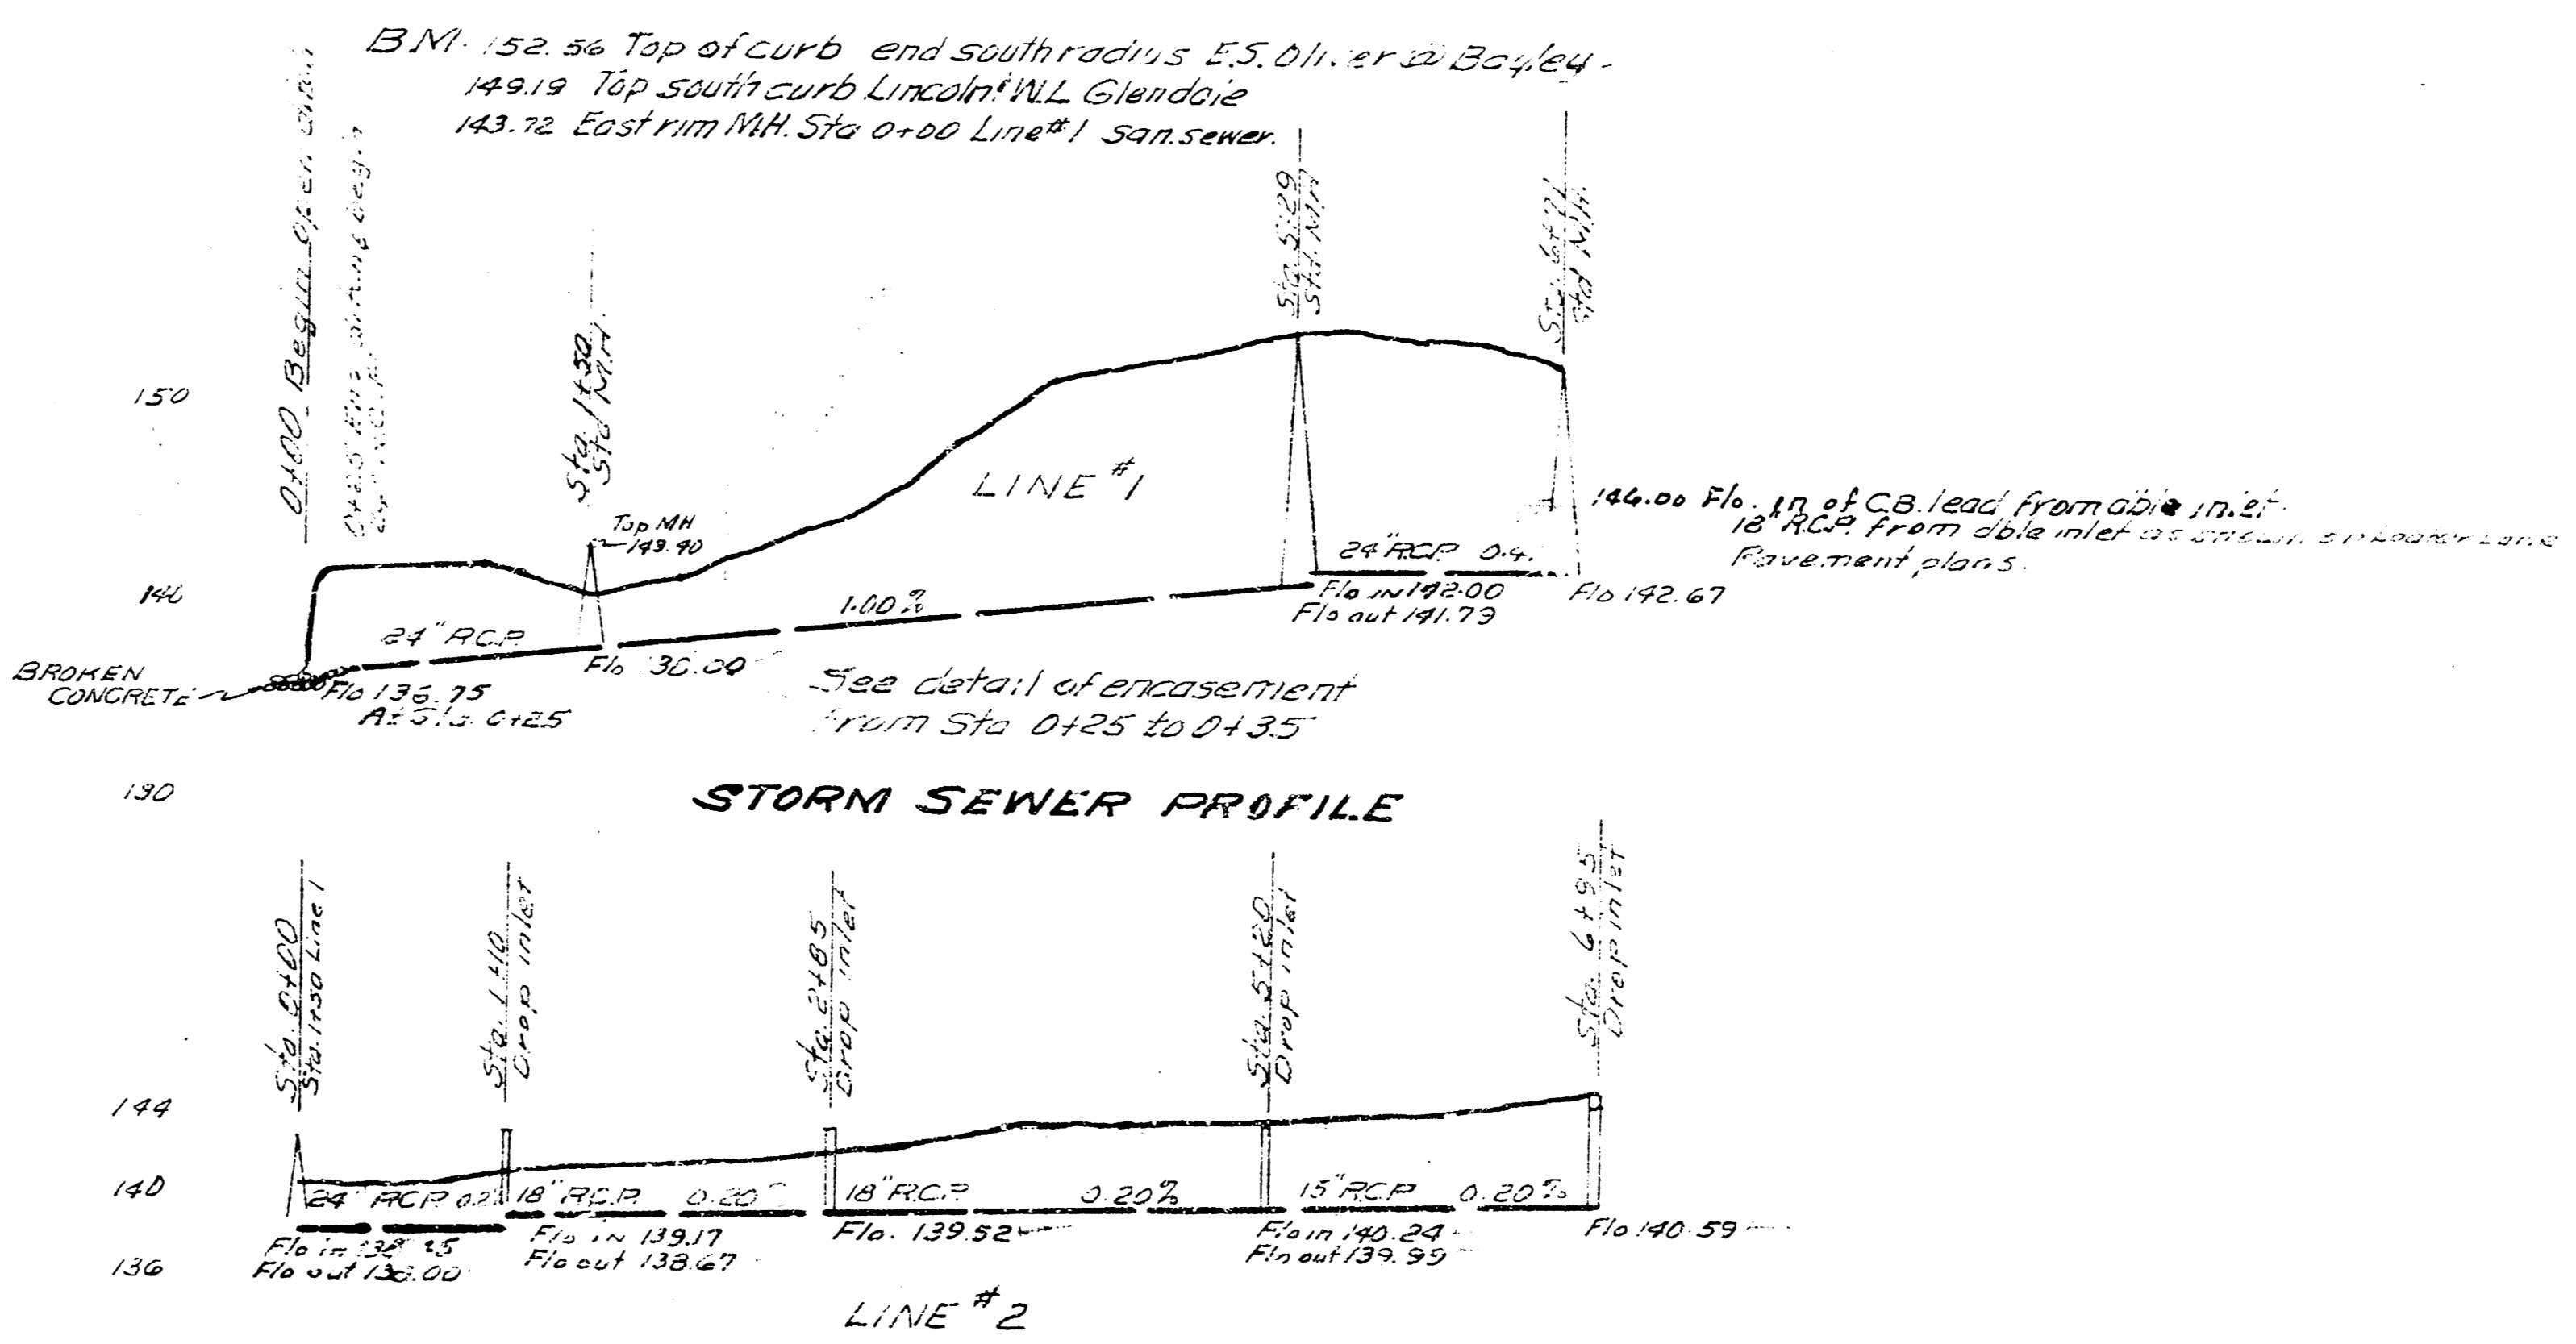 BM. 152.56 Top of curb end south radius E.S. @ Bayley
149.19 Top south curb Lincoln W.L. Glendale
143.72 East rim M.H. Sta 0+00 Line #1 san. sewer.
0+00 Begin open
0+25
Sta. 1+50
Std M.H.
Sta 5+29
Std. M.H.
Sta. 6+71
Std M.H.
150
140
130
Top MH
143.40
LINE #1
146.00 Flo. in of C.B. lead from dble inlet.
18" R.C.P. from dble inlet as shown on
Pavement plans.
24" R.C.P. 0.4
Flo in 142.00
Flo out 141.79
Flo 142.67
1.00%
24" R.C.P.
BROKEN
CONCRETE
Flo 136.75
At Sta. 0+25
Flo 138.00
See detail of encasement
from Sta 0+25 to 0+35
STORM SEWER PROFILE
Sta. 0+00
Sta. 1+50 Line 1
Sta. 1+10
Drop inlet
Sta. 2+85
Drop inlet
Sta. 5+20
Drop inlet
Sta. 6+95
Drop inlet
144
140
136
24" R.C.P. 0.2
18" R.C.P. 0.20%
18" R.C.P. 0.20%
15" R.C.P. 0.20%
Flo in
Flo out 138.00
Flo in 139.17
Flo out 138.67
Flo. 139.52
Flo in 140.24
Flo out 139.99
Flo 140.59
LINE #2